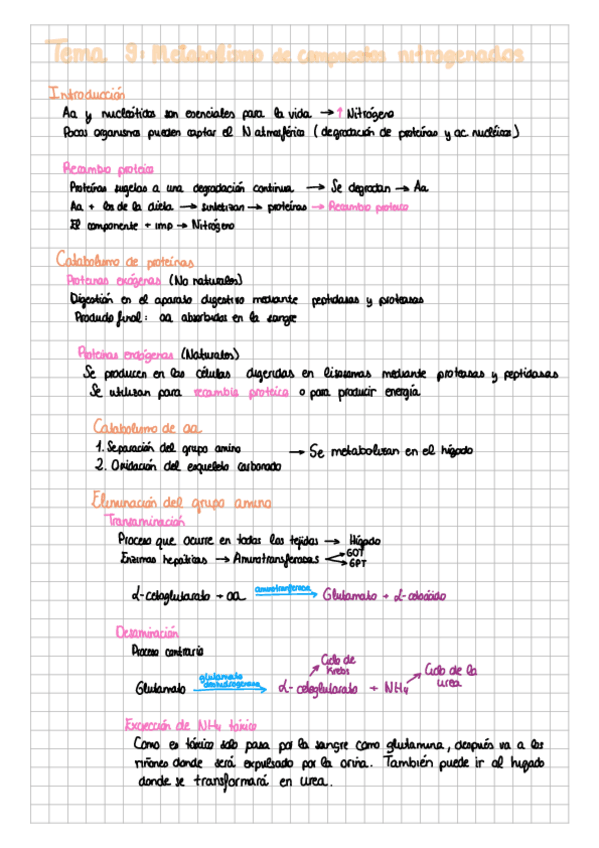 Tema 9: Metabolismo de compuestos nitrogenados
Introducción
Aa y nucleótidos son esenciales para la vida → ↑ Nitrógeno
Pocos organismos pueden captar el N atmosférico (degradación de proteínas y ac. nucléicos)
Recambio proteico
Proteínas sugetas a una degradación continua → Se degradan → Aa
Aa + los de la dieta → sintetizan → proteínas → Recambio proteico
El componente + imp → Nitrógeno
Catabolismo de proteínas
Proteínas exógenas (No naturales)
Digestión en el aparato digestivo mediante peptidasas y proteasas
Producto final: aa absorbidos en la sangre
Proteínas endógenas (Naturales)
Se producen en las células digeridas en lisosomas mediante proteasas y peptidasas
Se utilizan para recambio proteico o para producir energía
Catabolismo de aa
1. Separación del grupo amino
2. Oxidación del esqueleto carbonado → Se metabolizan en el hígado
Eliminación del grupo amino
Transaminación
Proceso que ocurre en todos los tejidos → Hígado
Enzimas hepáticas → Aminotransferasas GOT
GPT
α-cetoglutarato + aa aminotransferasa → Glutamato + α-cetoácido
Desaminación
Proceso contrario
Ciclo de Krebs
Ciclo de la urea
Glutamato glutamato deshidrogenasa → α-cetoglutarato + NH4
Excrección de NH4 tóxico
Como es tóxico solo pasa por la sangre como glutamina, después va a los
riñones donde será expulsado por la orina. También puede ir al hígado
donde se transformará en urea.